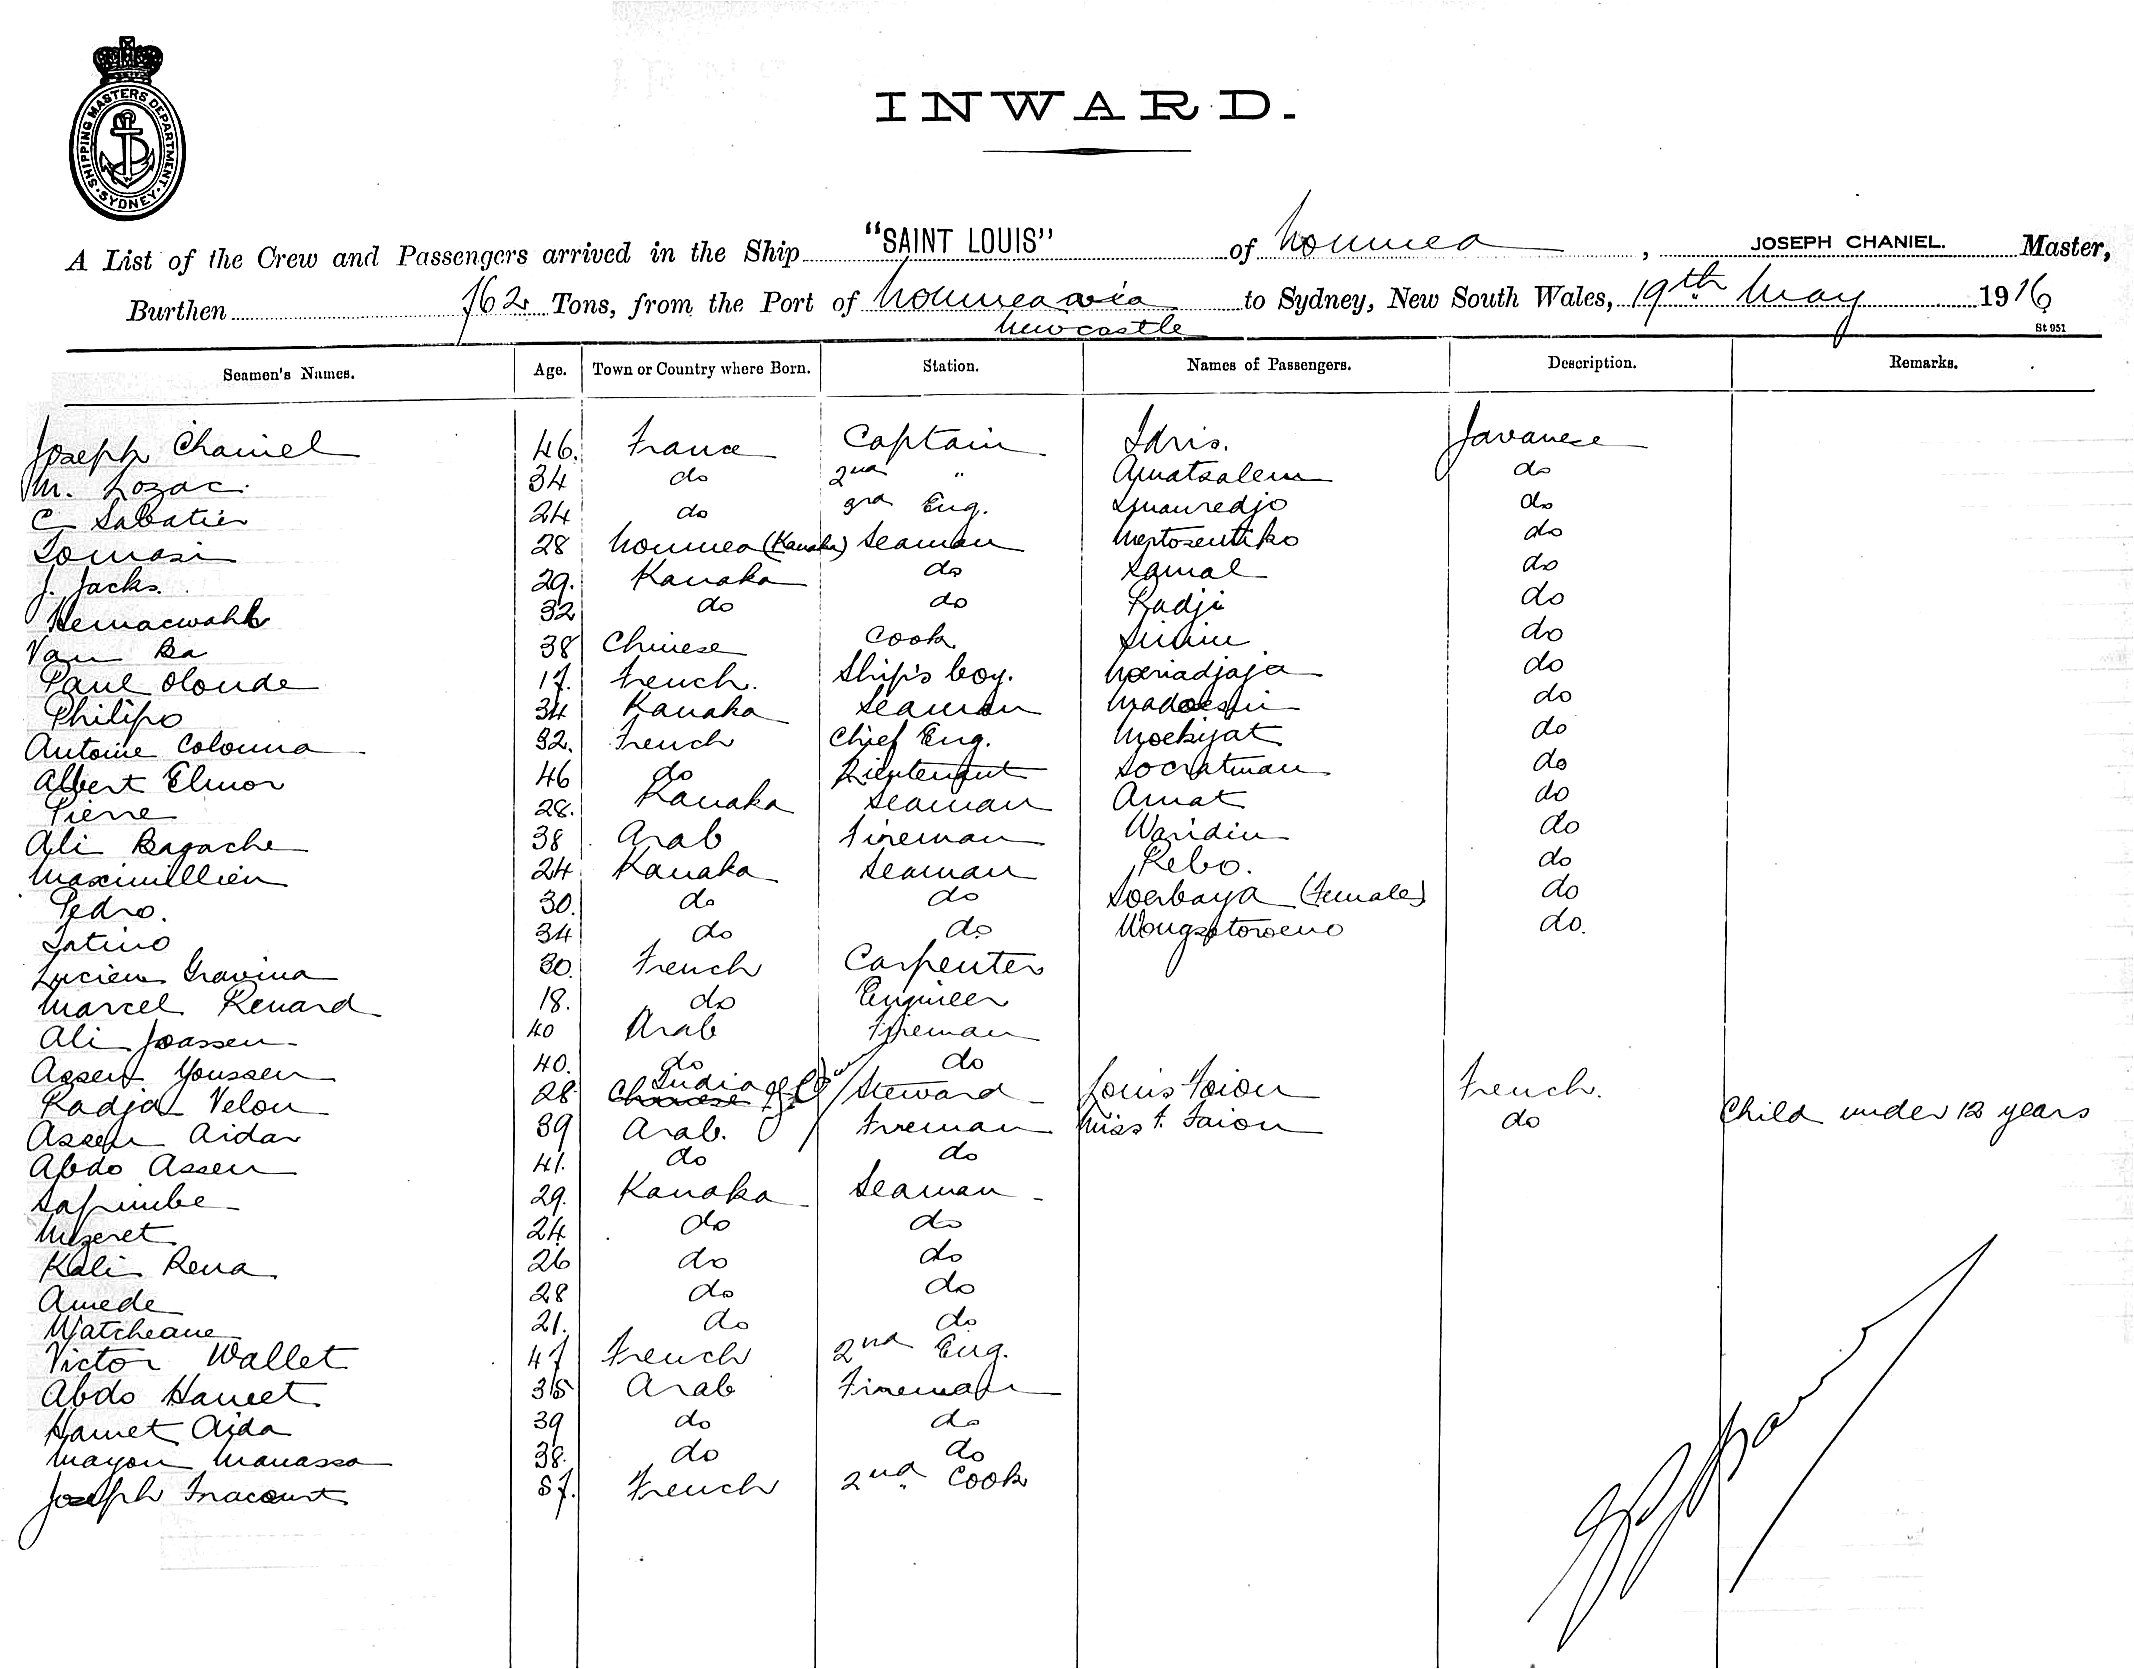 SHIPPING MASTERS DEPARTMENT · SYDNEY ·
INWARD.
A List of the Crew and Passengers arrived in the Ship "SAINT LOUIS" of Noumea, JOSEPH CHANIEL. Master,
Burthen 762 Tons, from the Port of Noumea via Newcastle to Sydney, New South Wales, 19th May 1916
St 951
Seamen's Names. Age. Town or Country where Born. Station. Names of Passengers. Description. Remarks.
Joseph Chaniel 46. France Captain Idris. Javanese
M. Lozac. 34 do 2nd " Amatsalem do
C Sabatier 24 do 3rd Eng. do
Tomasi 28 Noumea (Kanaka) Seaman Mertosentiko do
J. Jacks. 29. Kanaka do Samal do
32 do do Radji do
Van Ba 38 Chinese Cook. do
Paul Olonde 17. French. Ship's boy. Noeriadjaja do
Philipo 34 Kanaka Seaman Madoesin do
Antoine Colonna 32. French Chief Eng. Moekijat do
Albert Elmor 46 do Lieutenant Socratman do
Pierre 28. Kanaka Seaman Amat do
Ali Bagache 38 Arab Fireman Waridin do
Maximillien 24 Kanaka Seaman Rebo. do
Pedro. 30. do do Soerbaya (Female) do
34 do do do.
Lucien Gravina 30. French Carpenter
Marcel Renard 18. do Engineer
Ali Joassen 40 Arab Fireman
Assen Youssen 40. do do
Radja Velou 28 Chinese India Steward Louis Faion French.
Assen Aidar 39 Arab. Fireman Miss F. Faion do Child under 12 years
Abdo Assen 41. do do
Sapimbe 29. Kanaka Seaman
Mezeret 24 do do
Kali Rena 26 do do
Amede 28 do do
Watcheane 21. do do
Victor Wallet 47 French 2nd Eng.
Abdo Hamet 35 Arab Fireman
Hamet Aida 39 do do
Mayon Manassa 38. do do
Joseph Fracourt 57. French 2nd Cook